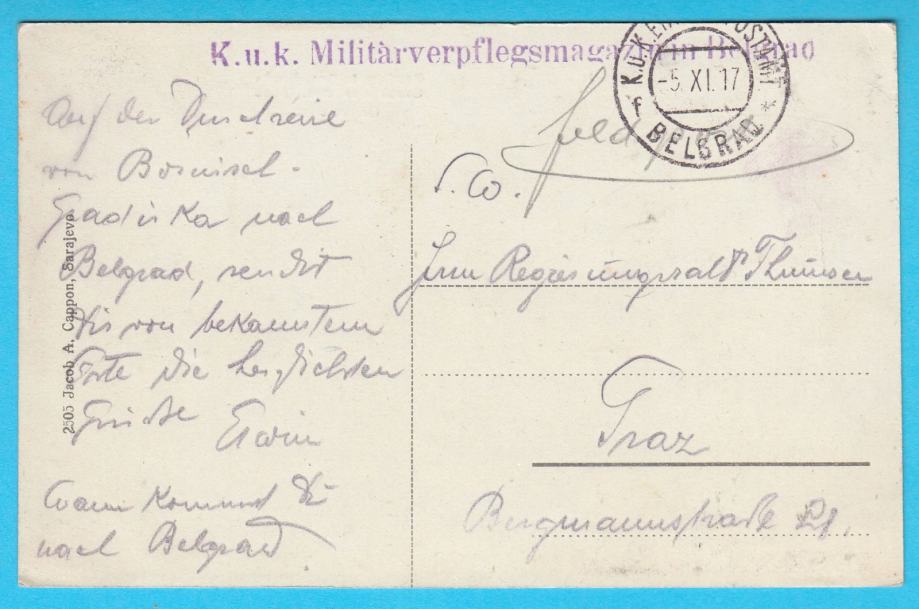 K.u.k. Militärverpflegsmagazin in Belgrad
K.U.K. ETAPPENPOSTAMT
-5.XI.17
f BELGRAD *
Auf der Durchreise
von Bosnisch-
Gradiska nach
Belgrad, sendet
Dir von bekanntem
Orte die herzlichsten
Grüße Erwin
Wann kommst Du
nach Belgrad
2505 Jacob A. Cappon, Sarajevo.
Feldpost
S. Co.
Herrn Regierungsrat
Graz
Bergmannstraße 21.